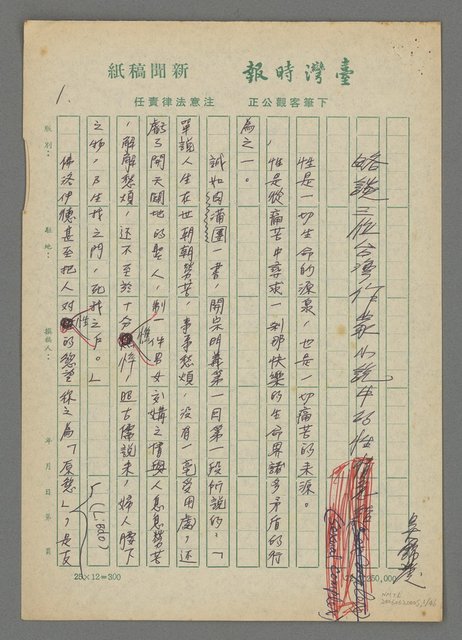 臺灣時報 新聞稿紙
下筆客觀公正 注意法律責任
1.
略說三位台灣作家小說中的性
吳錦發
性是一切生命的源泉,也是一切痛苦的來源。
性是從痛苦中尋求一剎那快樂的生命界諸多矛盾的行
為之一。
誠如肉蒲團一書,開宗明義第一回第一段所說的:「
單說人生在世朝朝勞苦,事事愁煩,沒有一毫受用處,還
虧了開天闢地的聖人,制一件男女交媾之情與人息息勞苦
,解解愁煩,還不至於十分憔悴,照古儒說來,婦人腰下
之物,乃生我之門,死我之戶。」
佛洛伊德甚至把人對性的慾望称之為「原慾」(Libido),是支
版別:
駐地:
撰稿人:
年 月 日 第 頁
25×12=300
250,000